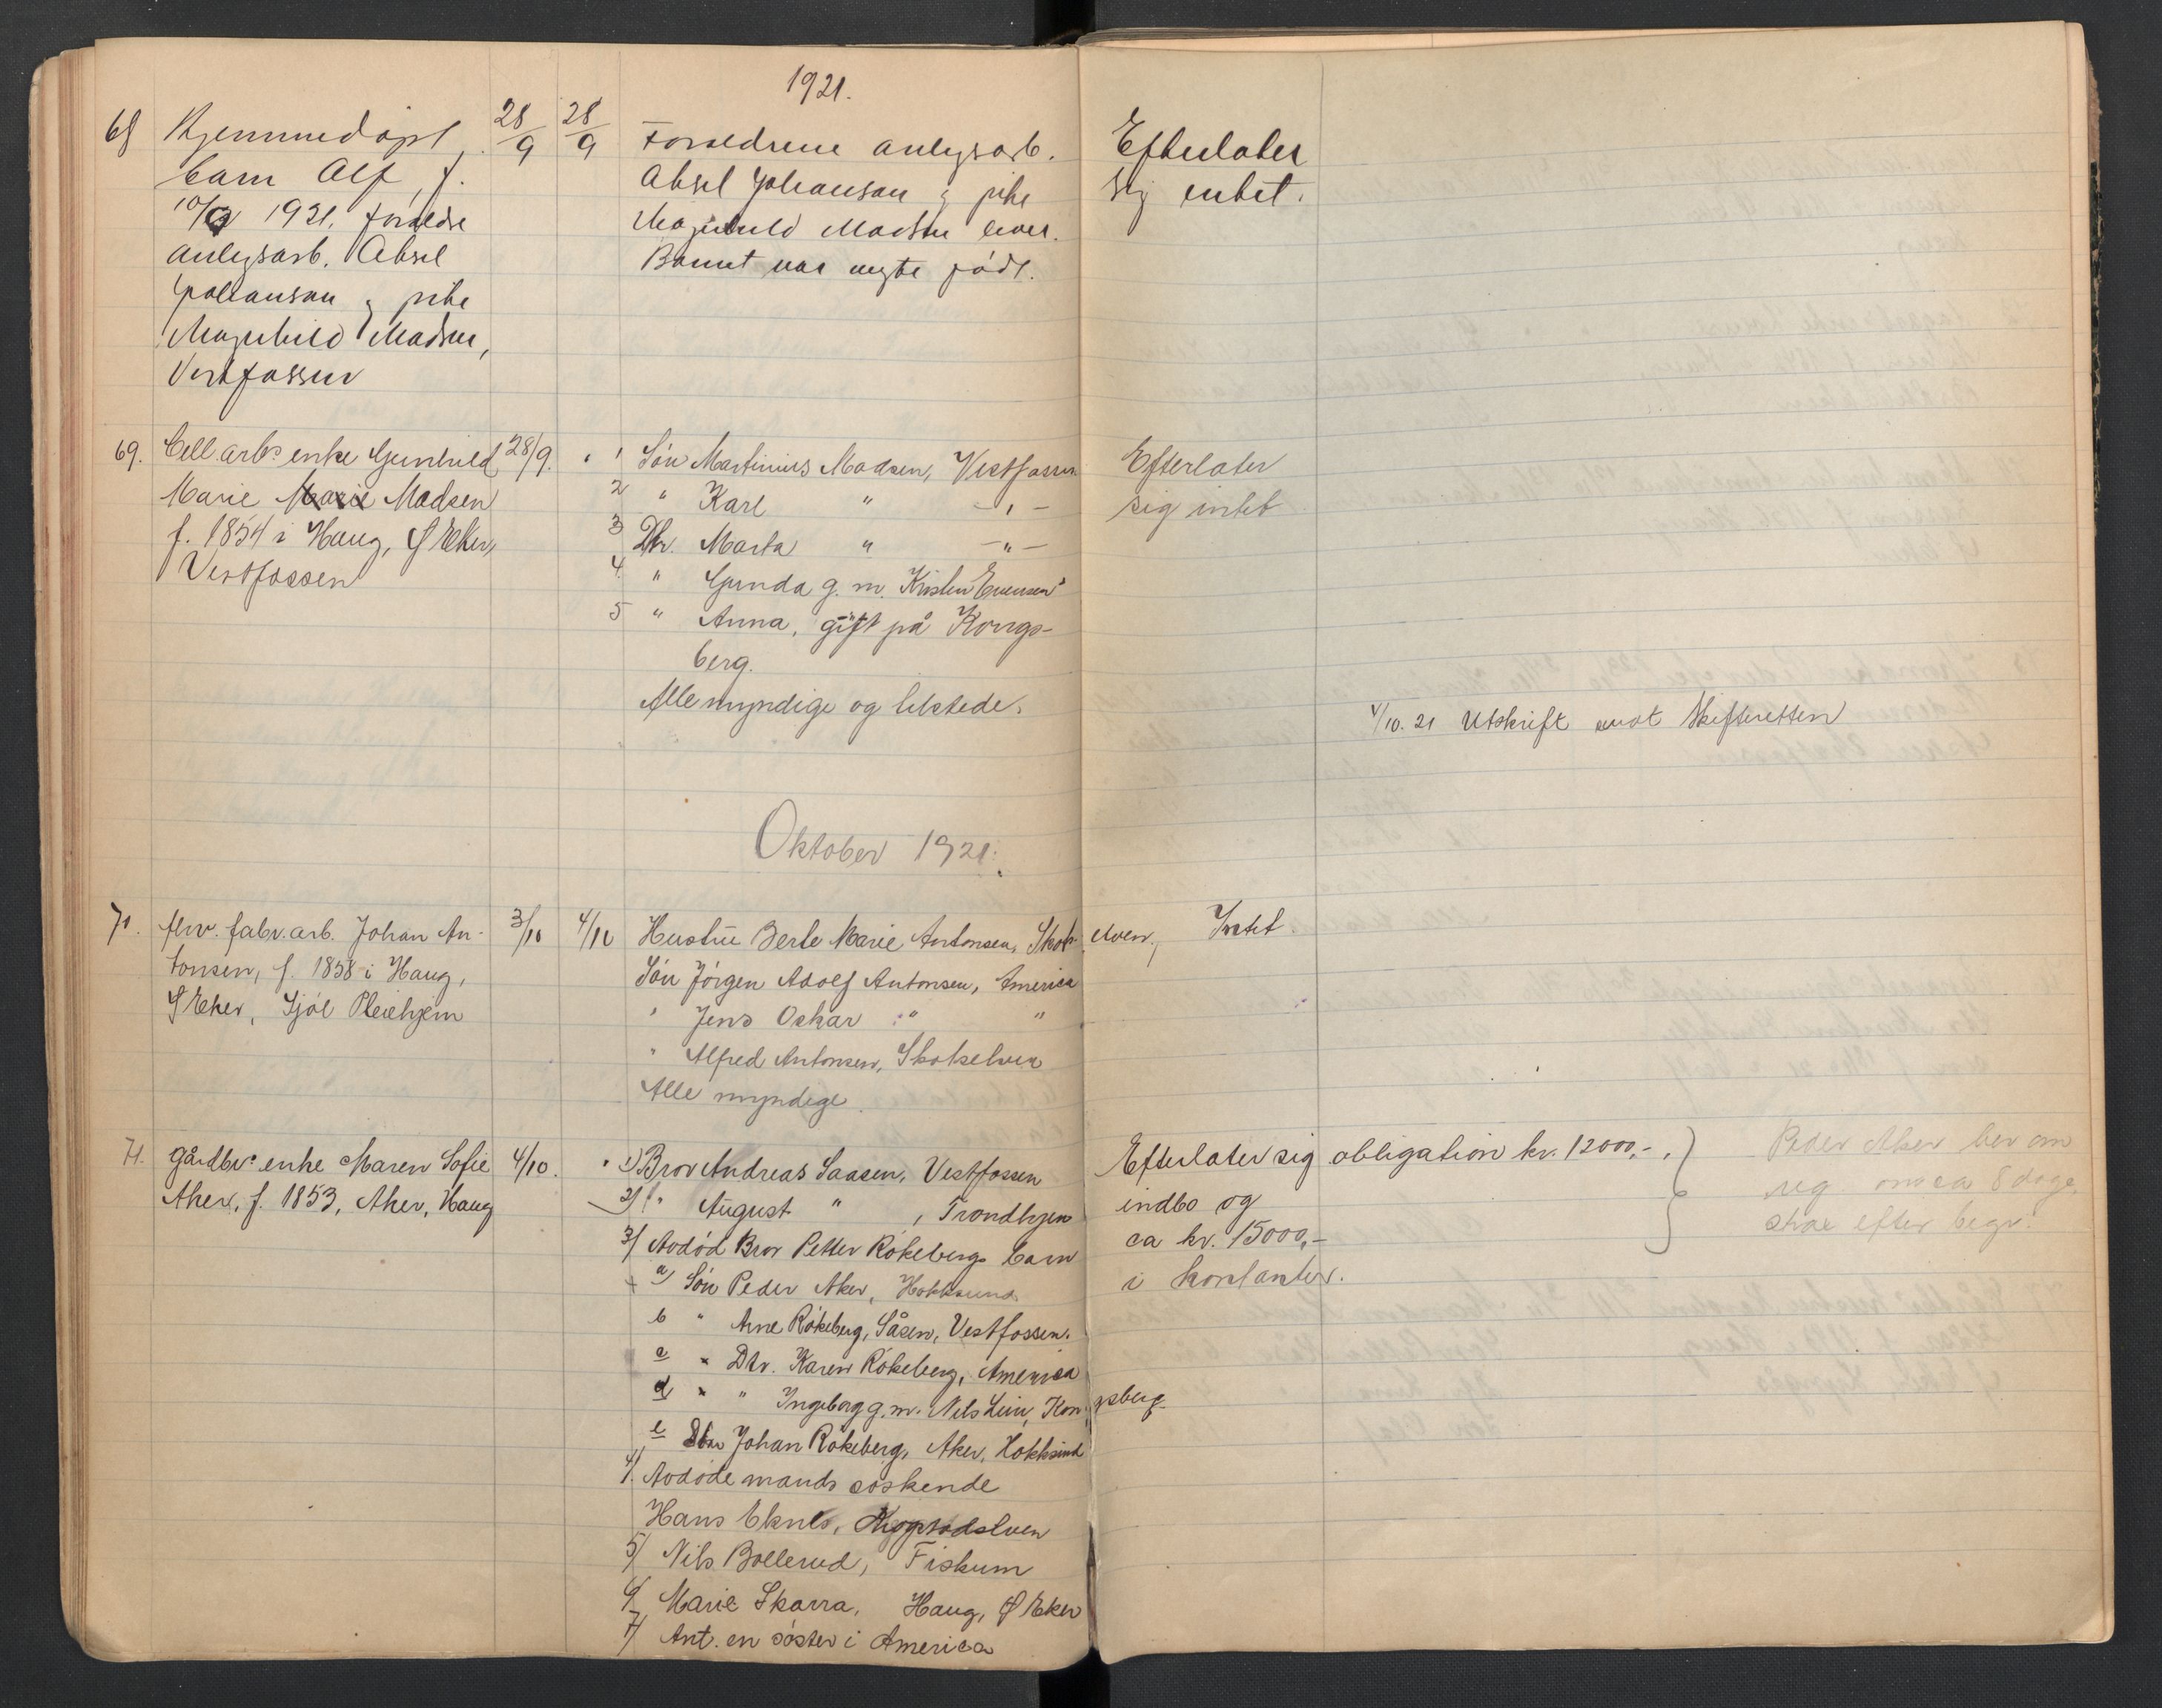 1921.
68 Hjemmedøpt 28/9 28/9 Forældrene anlegsarb. Efterlater
barn Alf, f. Aksel Johansen & pike sig intet.
10/9 1921. Forældre Magnhild Madsen lever.
anlegsarb. Aksel Barnet var uegte født.
Johansen & pike
Magnhild Madsen,
Vestfossen
69. Cell.arbs enke Gunhild 28/9. " 1 Søn Martinius Madsen, Vestfossen Efterlater
Marie Marie Madsen 2 " Karl " — " — sig intet
f. 1854 i Haug, Ø Eker, 3 Dtr. Marta " — " —
Vestfossen 4. " Gunda g. m. Kristen Evensen
5 " Anna, gift på Kongs-
berg.
Alle myndige og tilstede.
4/10. 21 Utskrift sendt Skifteretten
Oktober 1921.
70. fhv. fabr.arb. Johan An- 3/10 4/10 Hustru Berte Marie Antonsen, Skotselven, Intet.
tonsen, f. 1858 i Haug, Søn Jørgen Adolf Antonsen, America
Ø Eker, Sjøl Pleiehjem " Jens Oskar " "
" Alfred Antonsen, Skotselven
Alle myndige.
71. Gårdbrs enke Maren Sofie 4/10. " 1) Bror Andreas Saasen, Vestfossen Efterlater sig obligation kr. 12000,-. Peder Aker ber om
Aker, f. 1853, Aker, Haug 2) " August " , Trondhjem indbo og reg om ca 8 dage,
3) Avdød Bror Petter Røkebergs barn ca kr. 15000,- strax efter begr.
a) Søn Peder Aker, Hokksund i kontanter.
b " Arne Røkeberg, Såsen, Vestfossen.
c " Dtr. Karen Røkeberg, America
d " " Ingeborg g. m. Nils Lein, Kongsberg
e Johan Røkeberg, Aker, Hokksund
4) Avdøde mands søskende
Hans Eknes,
5) Nils Bollerud, Fiskum
6) Marie Skarra, Haug, Ø Eker
7) Ant. en søster i America